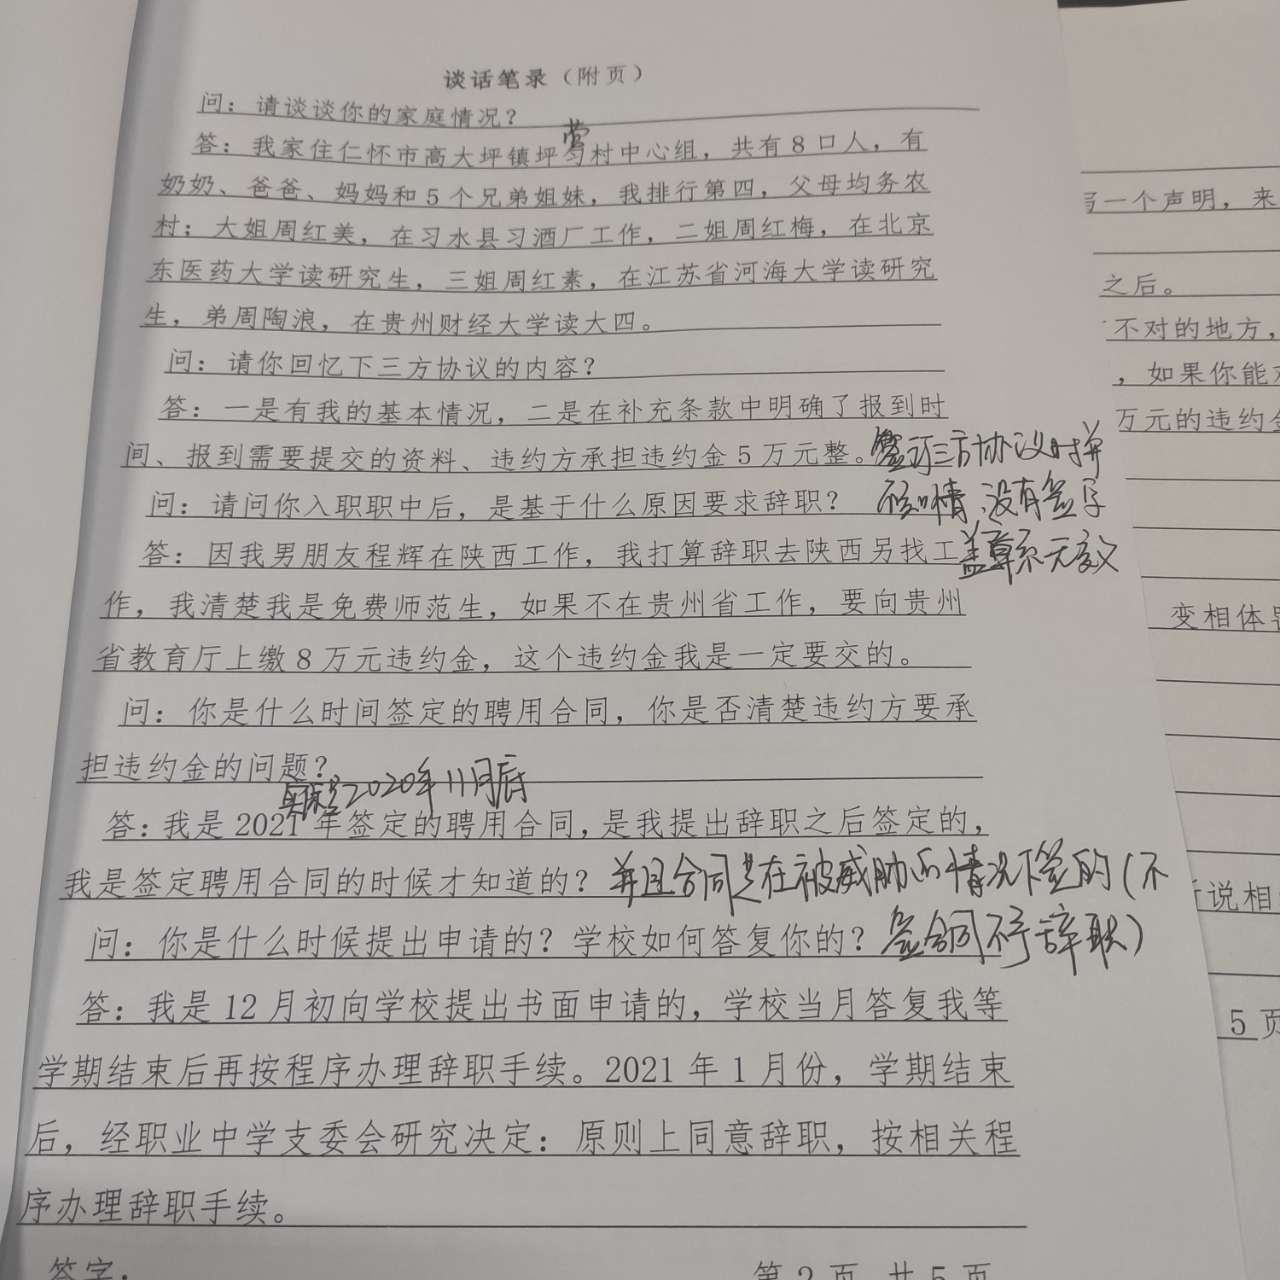 谈话笔录（附页）
问：请谈谈你的家庭情况？
莺
答：我家住仁怀市高大坪镇坪匀村中心组，共有8口人，有
奶奶、爸爸、妈妈和5个兄弟姐妹，我排行第四，父母均务农
村；大姐周红美，在习水县习酒厂工作，二姐周红梅，在北京
东医药大学读研究生，三姐周红素，在江苏省河海大学读研究
生，弟周陶浪，在贵州财经大学读大四。
问：请你回忆下三方协议的内容？
答：一是有我的基本情况，二是在补充条款中明确了报到时
间、报到需要提交的资料、违约方承担违约金5万元整。签订三方协议时并
问：请问你入职职中后，是基于什么原因要求辞职？
不知情，没有签字
答：因我男朋友程辉在陕西工作，我打算辞职去陕西另找工
盖章系无效
作，我清楚我是免费师范生，如果不在贵州省工作，要向贵州
省教育厅上缴8万元违约金，这个违约金我是一定要交的。
问：你是什么时间签定的聘用合同，你是否清楚违约方要承
担违约金的问题？
2020年11月底
答：我是2021年签定的聘用合同，是我提出辞职之后签定的，
我是签定聘用合同的时候才知道的？并且合同是在被威胁的情况下签的（不
问：你是什么时候提出申请的？学校如何答复你的？签合同不予辞职）
答：我是12月初向学校提出书面申请的，学校当月答复我等
学期结束后再按程序办理辞职手续。2021年1月份，学期结束
后，经职业中学支委会研究决定：原则上同意辞职，按相关程
序办理辞职手续。
签字：
第2页 共5页
一个声明，来
之后。
不对的地方，
，如果你能
万元的违约金
变相体
说相
5页